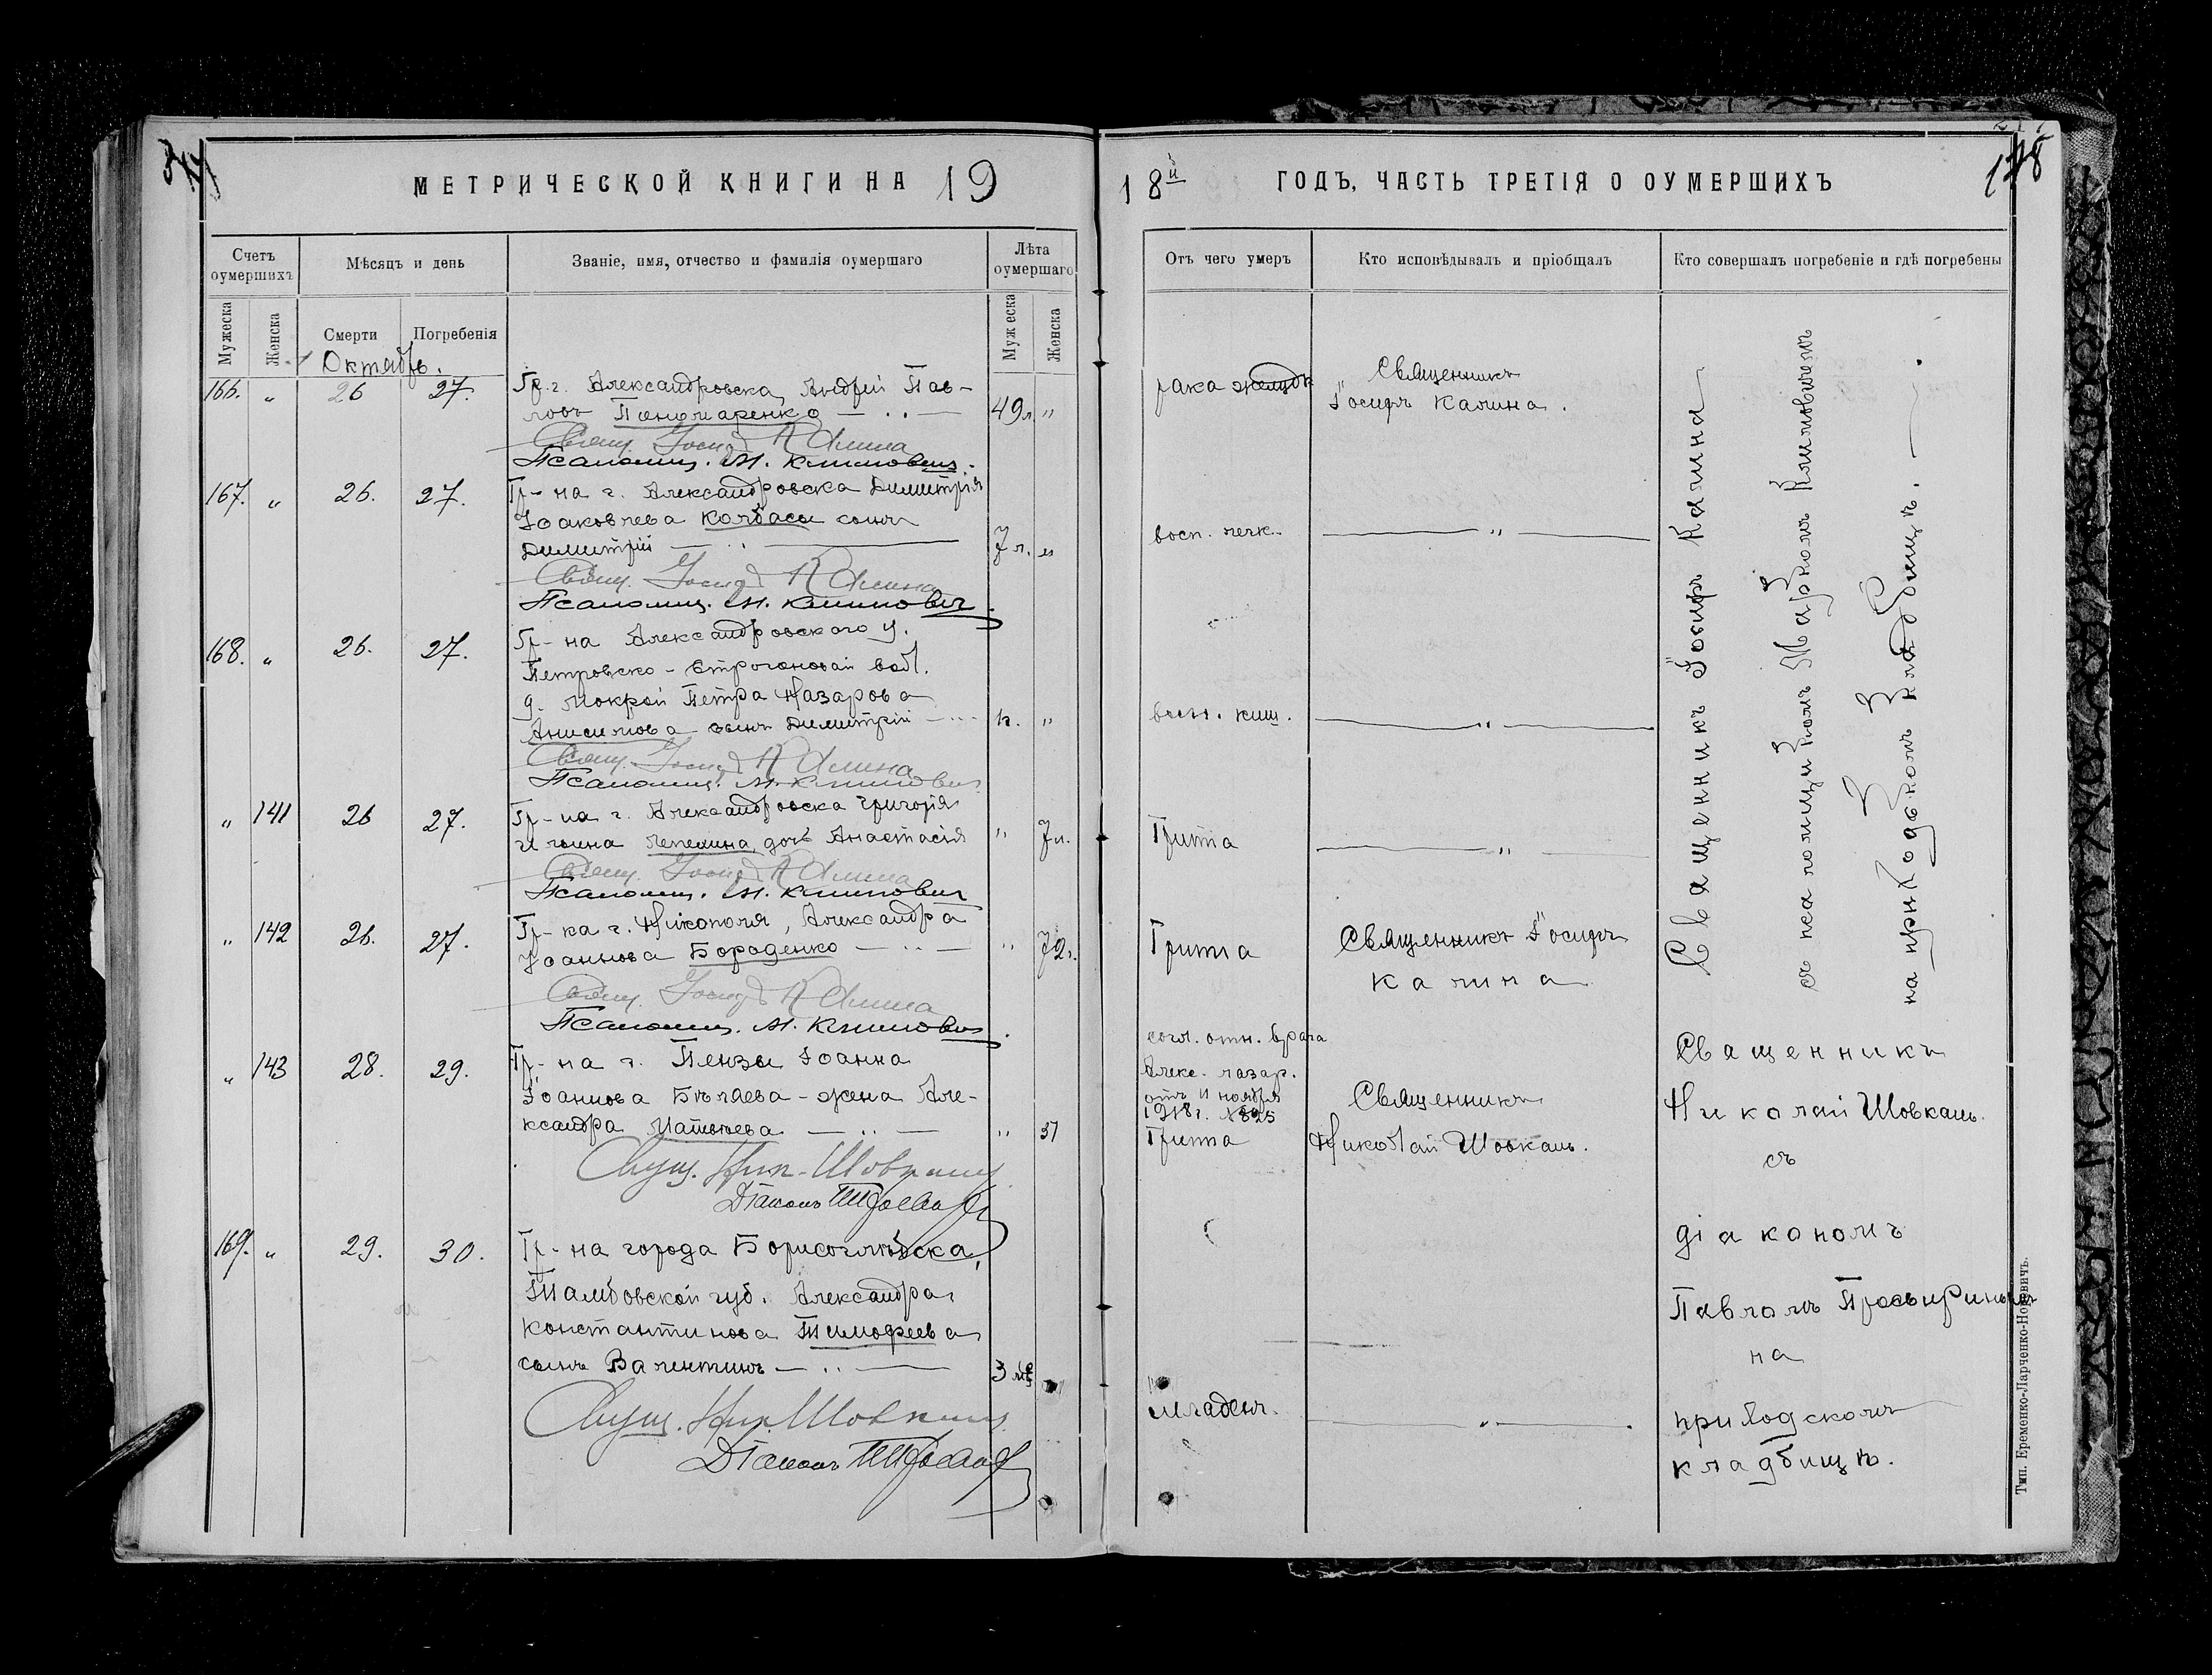 МЕТРИЧЕСКОЙ КНИГИ НА 19
Счетъ оумершихъ
Мѣсяцъ и день
Званіе, имя, отчество и фамилія оумершаго
Лѣта оумершаго
Мужеска
Женска
Смерти
Погребенія
Мужеска
Женска
Октябрь.
166. „ 26 27. Гр. г. Александровска, Андрей Пав-
ловъ Пономаренко 49 л. „
Свящ. Іосиф Калина
Псаломщ. М. Климович.
167. „ 26. 27. Гр-на г. Александровска Димитрія
Іоаковлева Колбаса сынъ
Димитрій 7 л. „
Свящ. Іосиф Калина
Псаломщ. М. Климович.
168. „ 26. 27. Гр-на Александровского у.
Петровско-Строгоновой вол.
д. Мокрой Петра Назарова
Анисимова сынъ Димитрій „
Свящ. Іосиф Калина
Псаломщ. М. Климович
„ 141 26 27. Гр-на г. Александровска Григорія
Ильина дочь Анастасія „ 7 л.
Свящ. Іосиф Калина
Псаломщ. М. Климович
„ 142 26. 27. Гр-ка г. Никополя, Александра
Іоаннова Бораденко „ 72 г.
Свящ. Іосиф Калина
Псаломщ. М. Климович.
„ 143 28. 29. Гр-на г. Пензы Іоанна
Іоаннова Бѣляева - жена Але-
ксандра Матвѣева „ 51
Свящ. Ник. Шовкань
Діаконъ
169. „ 29. 30. Гр-на города Борисоглѣбска,
Тамбовской губ. Александра
Константинова Тимофеева
сынъ Валентинъ 3 мѣ
Свящ. Ник. Шовкань
Діаконъ
18й ГОДЪ, ЧАСТЬ ТРЕТІЯ О ОУМЕРШИХЪ
Отъ чего умеръ
Кто исповѣдывалъ и пріобщалъ
Кто совершалъ погребеніе и гдѣ погребены
рака желудк
Священникъ
Іосифъ Калина.
восп. легк. „
восп. киш. „
Гриппа „
Гриппа Священникъ Іосифъ
Калина
Священникъ Іосифъ Калина
съ псаломщикомъ Маркомъ Климовичемъ
на приходскомъ кладбищѣ.
согл. отн. врача
Алекс. лазар.
отъ 11 ноября
1918 г. № 825
Гриппа
Священникъ
Николай Шовкань.
младен. „
Священникъ
Николай Шовкань.
съ
діакономъ
Павломъ
на
приходскомъ
кладбищѣ.
Тип. Еременко-Ларченко-Норовичъ.